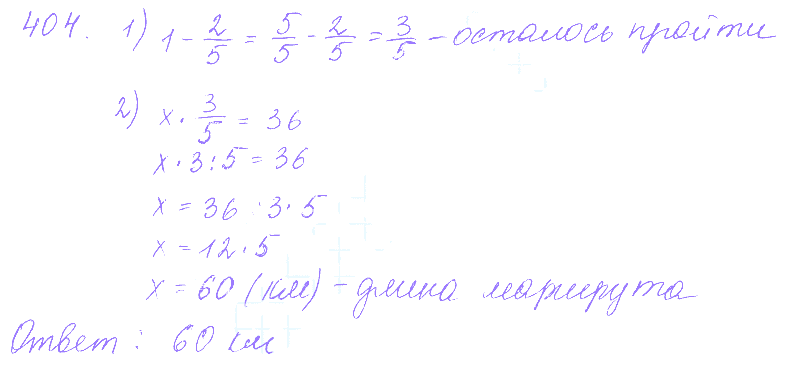 404. 1) 1 - 2/5 = 5/5 - 2/5 = 3/5 - осталось пройти
2) x · 3/5 = 36
x · 3 : 5 = 36
x = 36 : 3 · 5
x = 12 · 5
x = 60 (км) - длина маршрута
Ответ: 60 км